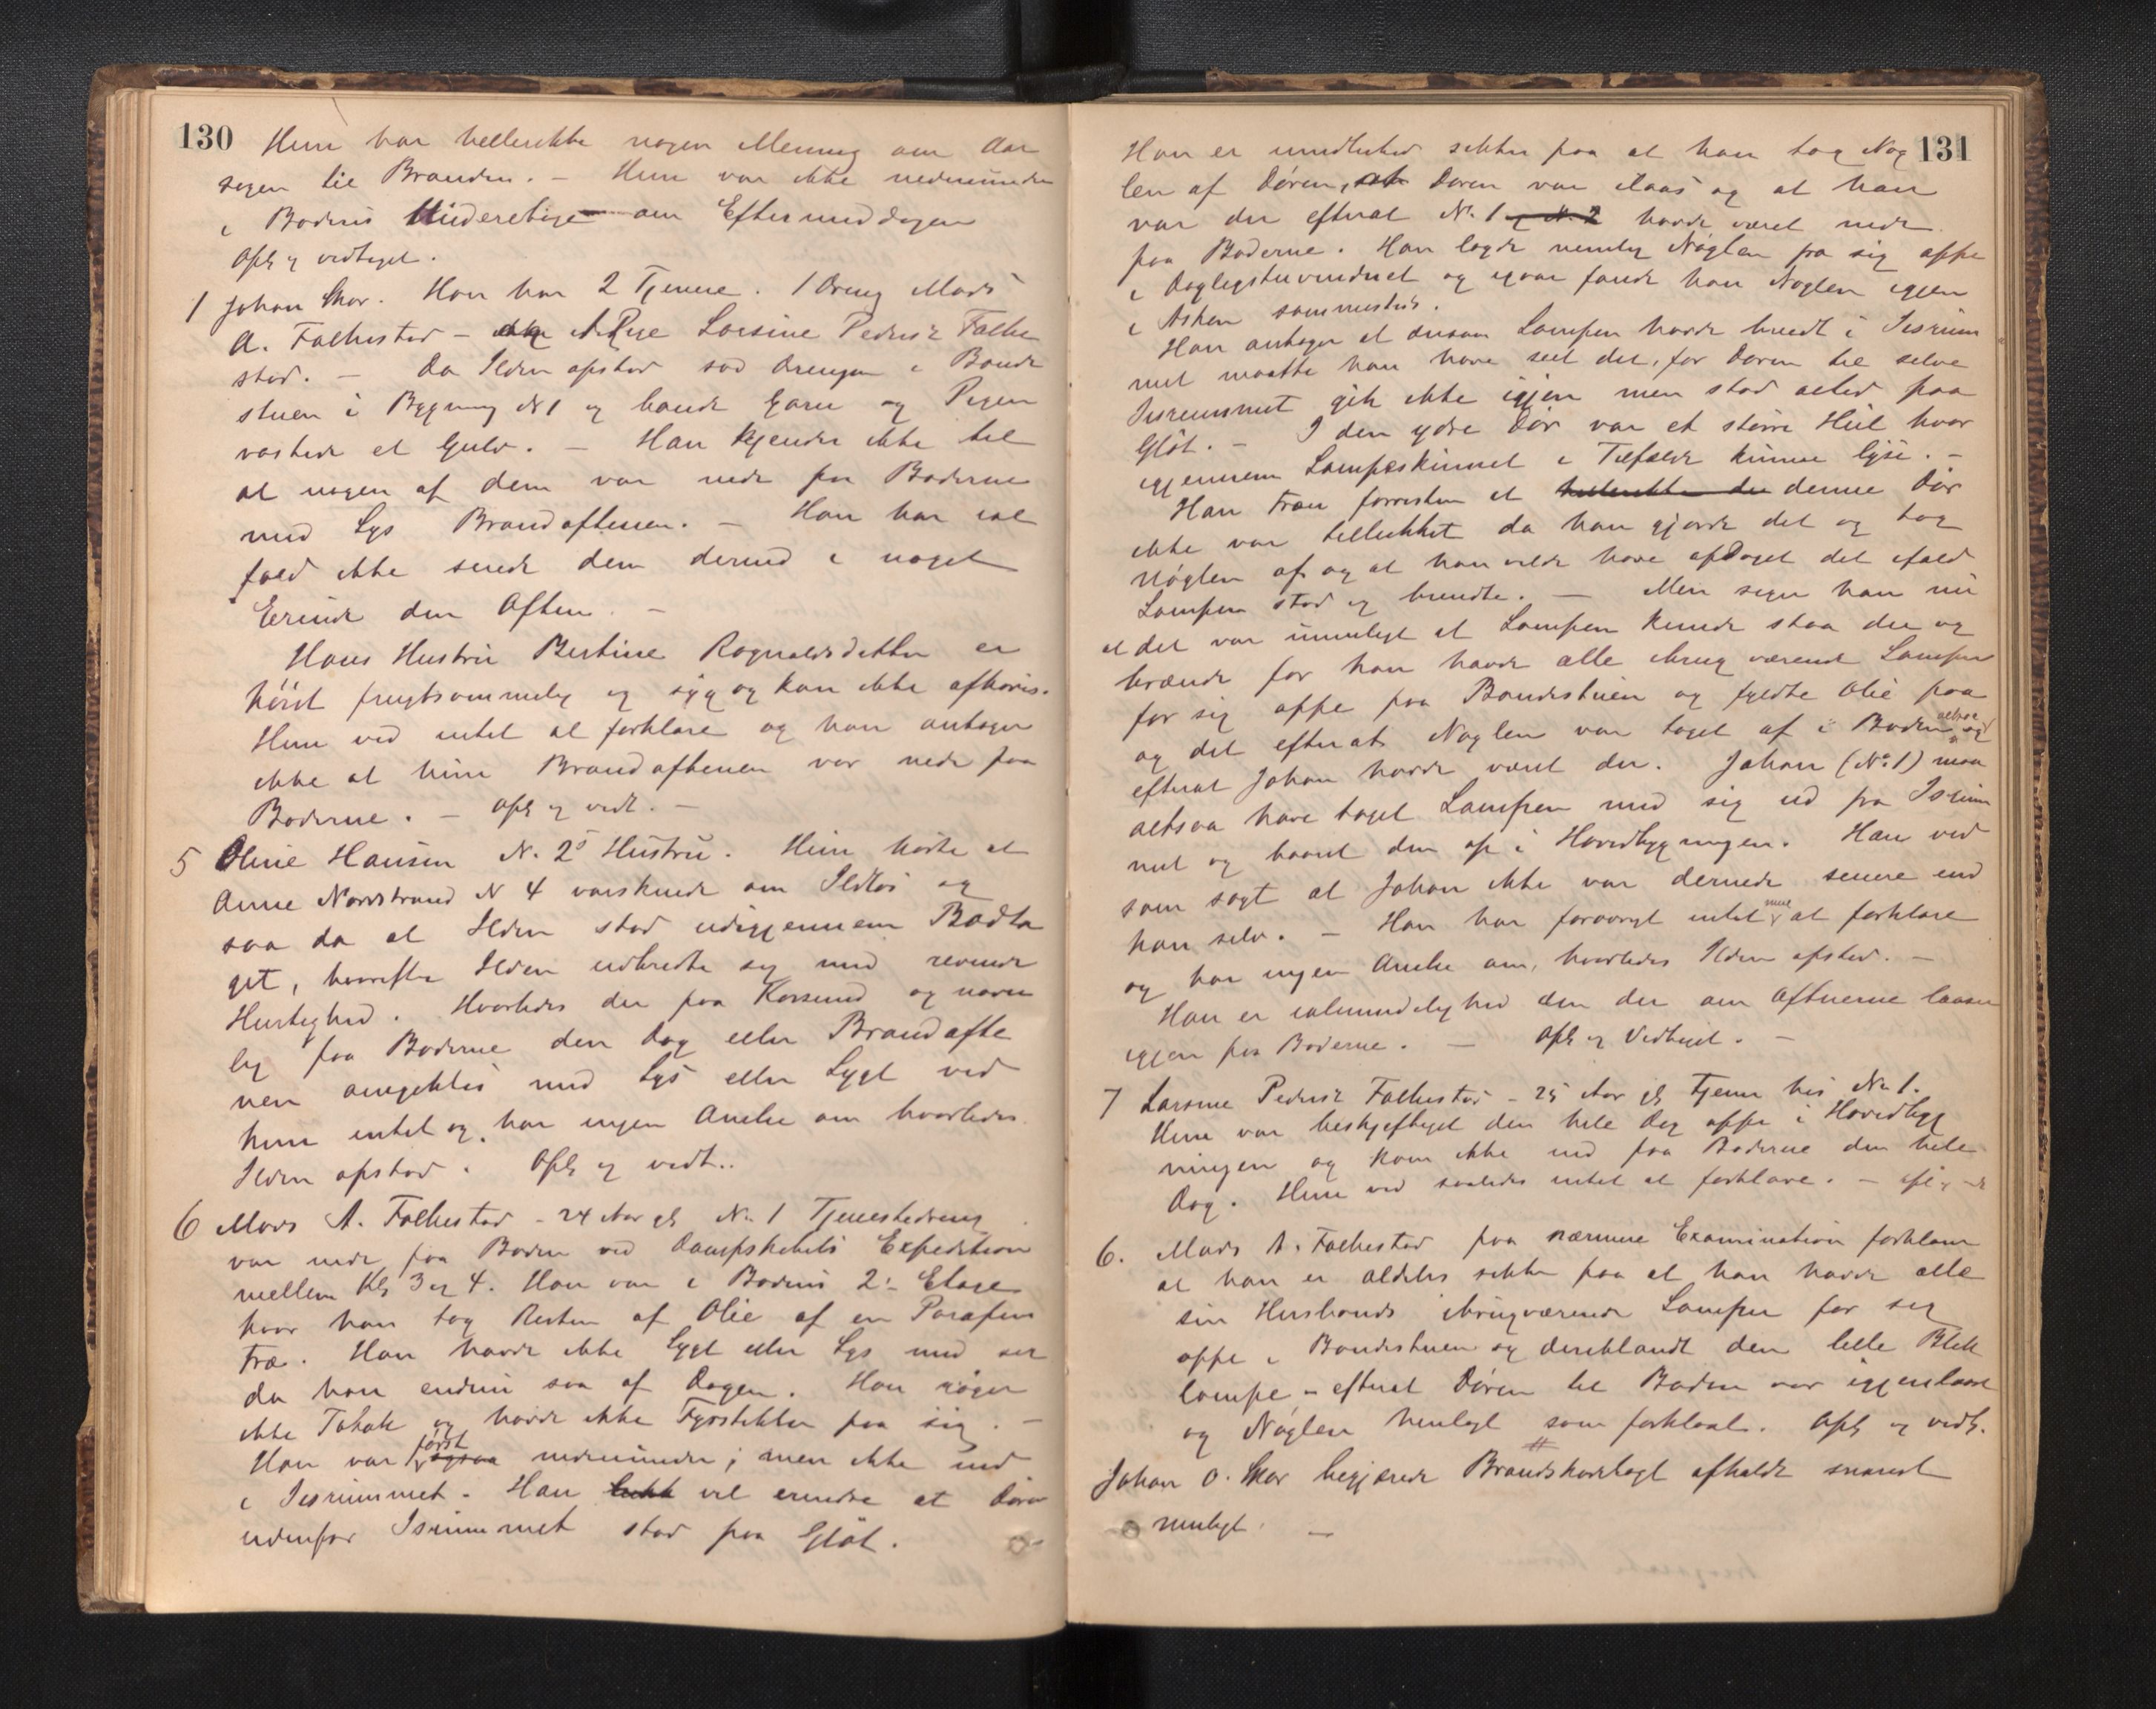 130
Hun har hellerikke nogen Mening om Aar
sagen til Branden. – Hun var ikke nedenunder
i Bodens Underetage om Eftermiddagen
Opl. og vedtaget.
1 Johan Skor. Han har 2 Tjenere. 1 Dreng Mads
A. Falkestad – Pige Larsine Pedersd. Falke
stad. – Da Ilden opstod sad Drengen i Bonde
stuen i Bygning N 1 og bandt Garn og Pigen
vaskede et Gulv. – Han kjender ikke til
at nogen af dem var nede paa Boderne
med Lys Brandaftenen. – Han har ial
fald ikke sendt dem derned i noget
Erinde den Aften. –
Hans Hustru Bertine Ragnaldsdatter er
høist frugtsommelig og syg og kan ikke afhøres.
Hun ved intet at forklare og han antager
ikke at hun Brandaftenen var nede paa
Boderne. – Opl. og vedt. –
5 Oline Hansen N. 2s Hustru. Hun hørte at
Anne Nordstrand N 4 varskuede om Ildløs og
saa da at Ilden stod udigjennem Bodta
get, hvorefter Ilden udbredte sig med rivende
Hurtighed. Hvorledes der paa Korsund og navn
lig paa Boderne den Dag eller Brandafte
nen omgikkes med Lys eller Lygt ved
hun intet og har ingen Anelse om hvorledes
Ilden opstod. Opl. og vedt..
6 Mads A. Falkestad – 24 Aar gl. N. 1 Tjenestedreng
var nede paa Boden ved Dampskibets Expedition
mellem Kl. 3 og 4. Han var i Bodens 2. Etage
hvor han tog Resten af Olie af en Parafin
Træ. Han havde ikke Lygt eller Lys med sig
da han endnu saa af Dagen. Han røger
ikke Tobak og havde ikke Fyrstikker paa sig. –
Han var først ogsaa nedenunder; men ikke ind
i Isrummet. Han vil erindre at Døren
udenfor Isrummet stod paa Gløt.
131
Han er imidlertid sikker paa at han tog Nøg
len af Døren, at Døren var i Laas og at han
var der efterat N. 1 og N. 2 havde været nede
paa Boderne. Han lagde nemlig Nøglen fra sig oppe
i Dagligstuevinduet og igaar fandt han Nøglen igjen
i Asken sammesteds.
Han antager at dersom Lampen havde brendt i Isrum
met maatte han have seet det, for Døren til selve
Isrummet gik ikke igjen men stod altid paa
Gløt. – I den ydre Dør var et større Hul hvor
igjennem Lampeskinnet i Tilfælde kunne lyse. –
Han tror forresten at denne Dør
ikke var tillukket da han gjorde det og tog
Nøglen af og at han vilde have opdaget det ifald
Lampen stod og brendte. – Men siger han nu
at det var umuligt at Lampen kunde staa der og
brænde for han havde alle ibrug værende Lamper
for sig oppe paa Bondestuen og fyldte Olie paa
og det efterat Nøglen var taget af i Boden og
efterat Johan havde været der. Johan (No 1) maa
altsaa have taget Lampen med sig ud fra Isrum
met og baaret den op i Hovedbygningen. Han ved
som sagt at Johan ikke var dernede senere end
han selv. – Han har forøvrigt intet mere at forklare
og har ingen Anelse om, hvorledes Ilden opstod. –
Han er ialmindelighed den der om Aftnerne laaser
igjen paa Boderne. – Opl. og Vedtaget. –
7 Larsine Pedersd. Falkestad – 25 Aar gl. Tjener hos No 1.
Hun var beskjeftiget den hele Dag oppe i Hovedbyg
ningen og kom ikke ned paa Boderne den hele
Dag. Hun ved saaledes intet at forklare. –
6. Mads A. Falkestad paa nærmere Examination forklarer
at han er aldeles sikker paa at han havde alle
sin Husbonds ibrugværende Lamper for sig
oppe i Bondestuen og deriblandt den lille Blik
lampe – efterat Døren til Boden var igjenlaaset
og Nøglen henlagt som forklart. Opl. og vedt.
Johan O. Skor begjærede Brandskadetagt afholdt snarest
muligt. –